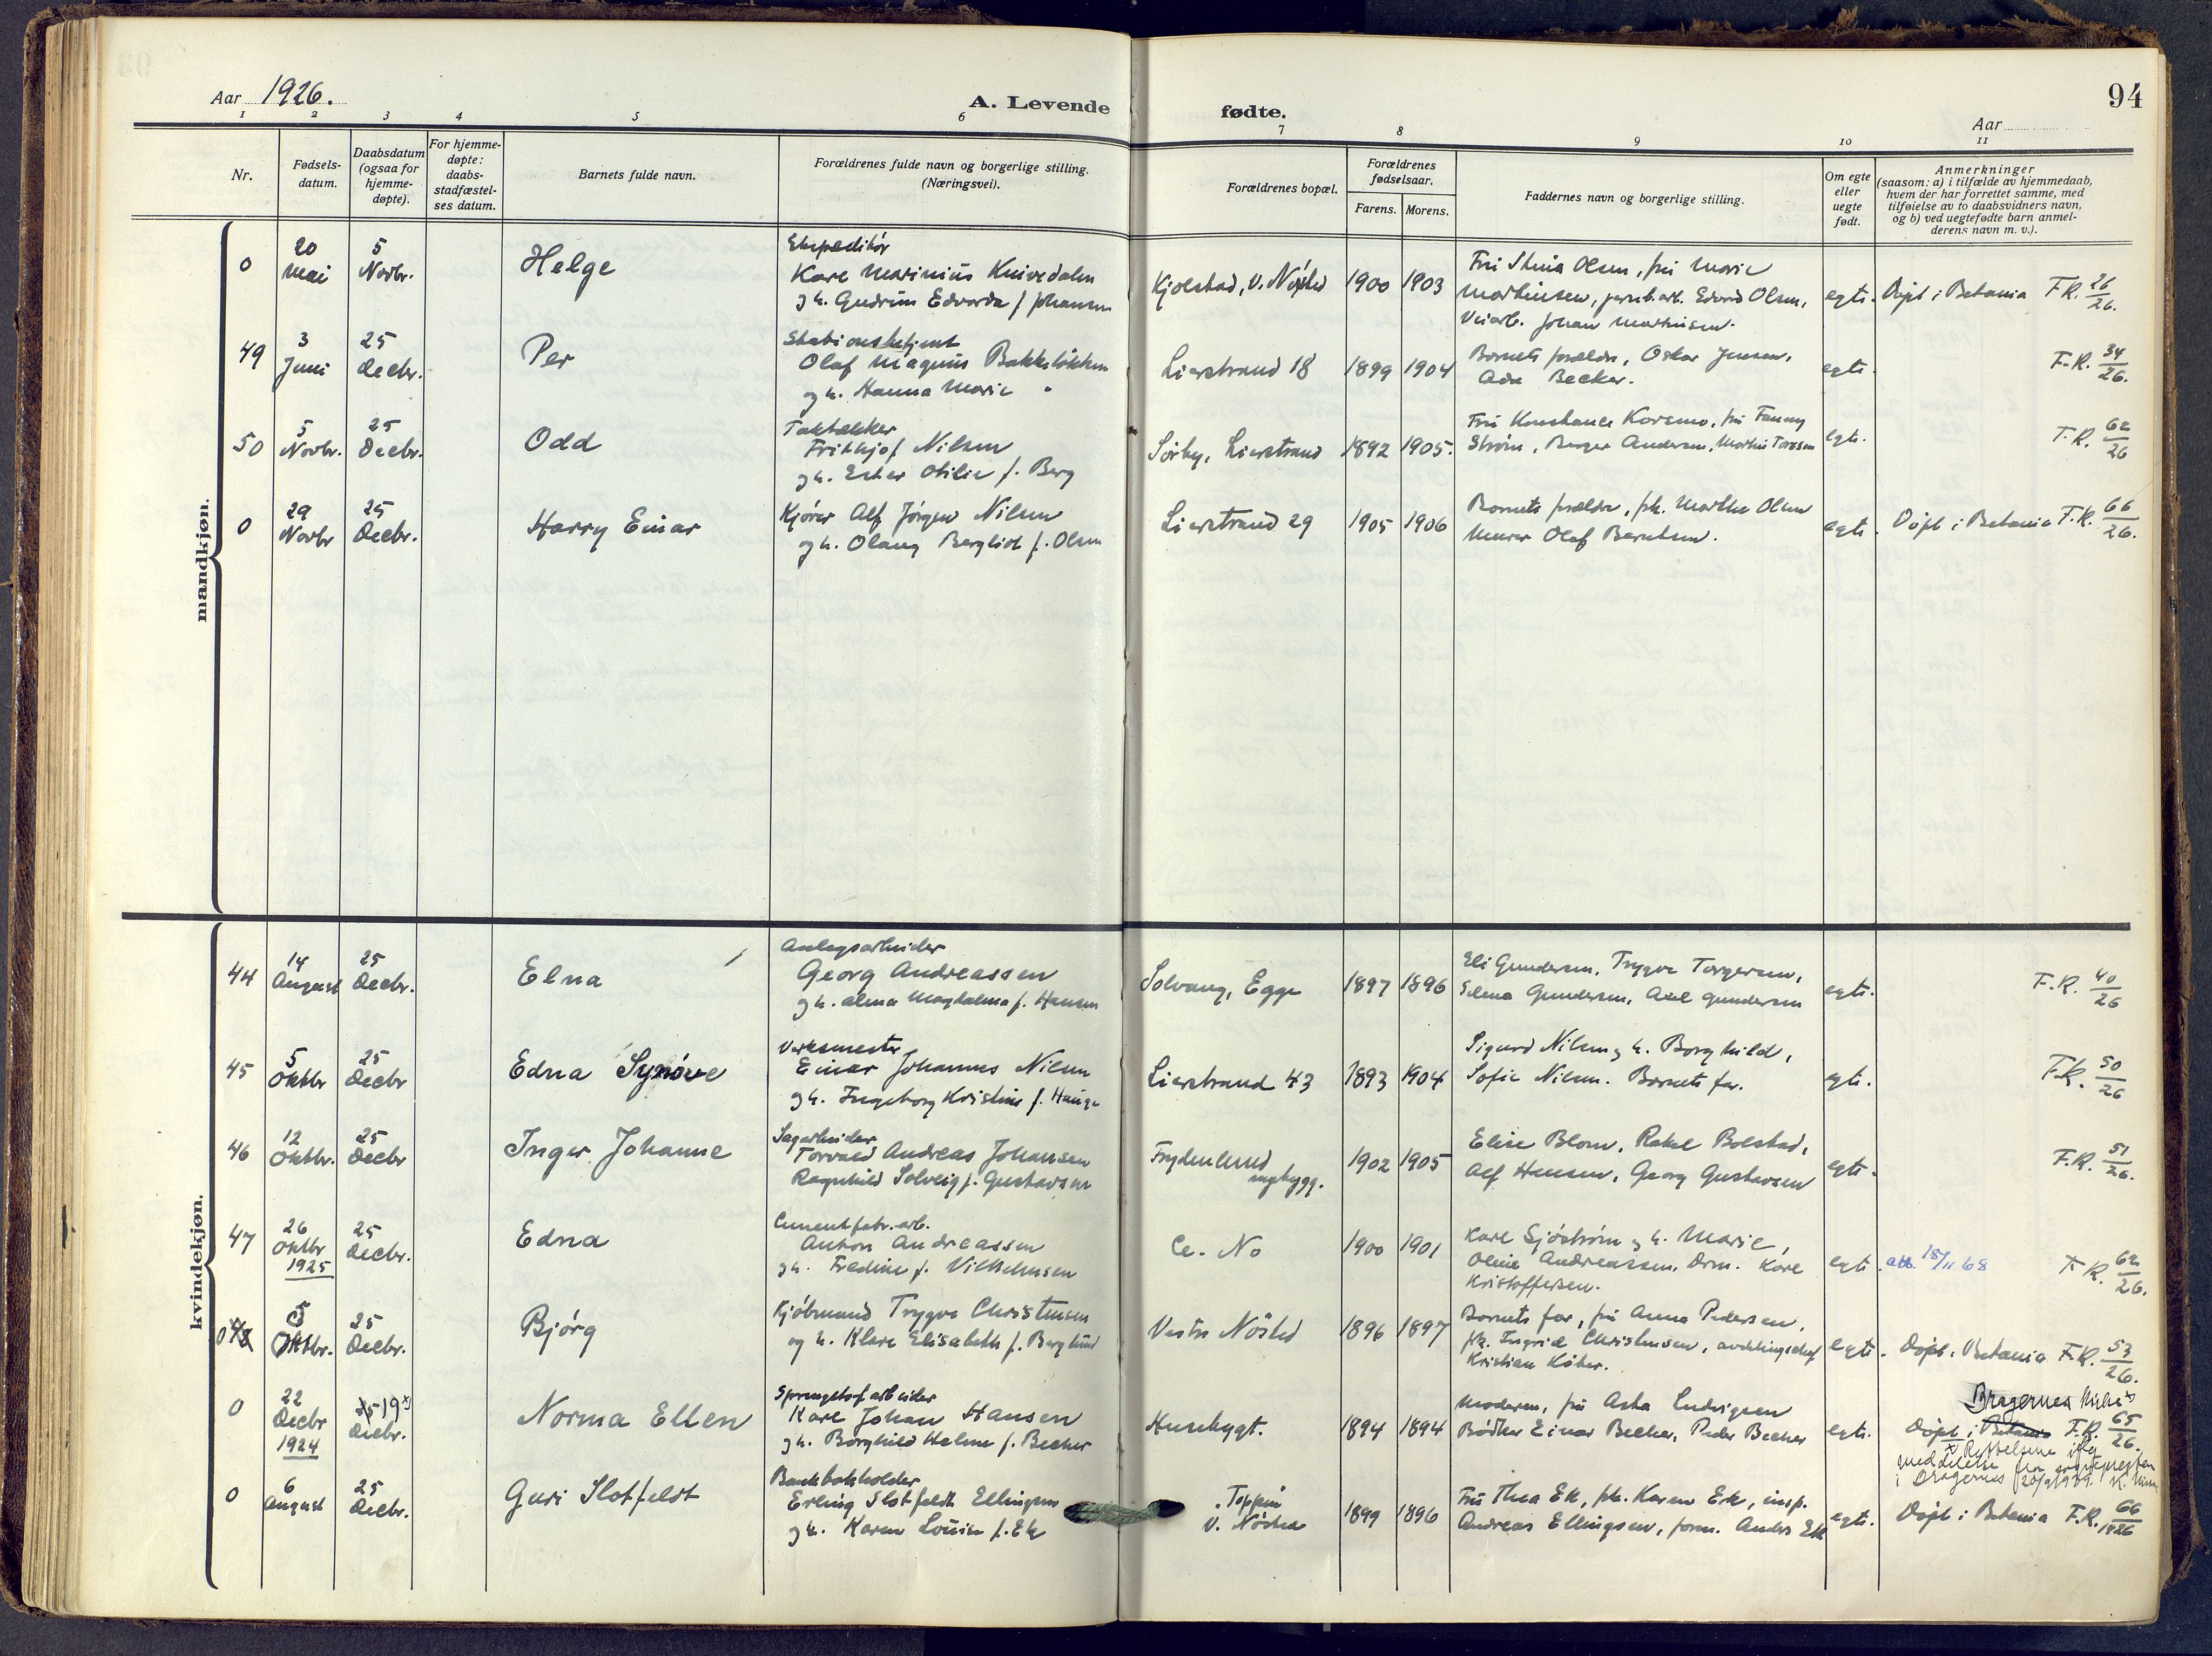 94
Aar 1926.
A. Levende
fødte.
Aar
1 2 3 4 5 6 7 8 9 10 11
Nr.
Fødsels-
datum.
Daabsdatum
(ogsaa for
hjemme-
døpte).
For hjemme-
døpte:
daabs-
stadfæstel-
ses datum.
Barnets fulde navn.
Forældrenes fulde navn og borgerlige stilling.
(Næringsvei).
Forældrenes bopæl.
Forældrenes
fødselsaar.
Farens. Morens.
Faddernes navn og borgerlige stilling.
Om egte
eller
uegte
født.
Anmerkninger
(saasom: a) i tilfælde av hjemmedaab,
hvem der har forrettet samme, med
tilføielse av to daabsvidners navn,
og b) ved uegtefødte barn anmel-
derens navn m. v.).
mandkjøn.
0
20
Mai
5
Novbr.
Helge
Ekspeditør
Kare Marinius Knivedalen
g h. Gudrun Edvarda f. Johansen
Kjolstad, V. Nøsted
1900 1903
Fru Olsen, fru Marie
Marthinsen, jernb.arb. Edvard Olsen,
Veiarb. Johan Marthinsen.
egte.
Døpt i Betania F.R. 26/26.
49
3
Juni
25
Decbr.
Per
Stationsbetjent
Olaf Magnus Bakkeløkken
og h. Hanna Marie "
Lierstrand 18
1899 1904
Barnets forældre, Oskar Jensen,
Ada Becker.
egte.
F.R. 34/26.
50
5
Novbr.
25
Decbr.
Odd
Taktækker
Frithjof Nilsen
g h. Ester Otilie f. Berg
Sørby, Lierstrand
1892 1905.
Fru Konstance Korsmo, fru Fanny
Strøm, Birger Andersen,
egte.
F.R. 62/26
0
29
Novbr
25
Decbr.
Harry Einar
Kjører Alf Jørgen Nilsen
og h. Olaug Bergliot f. Olsen
Lierstrand 29
1905 1906
Barnets forældre, frk. Marthe Olsen
Murer Olaf Berntsen.
egte.
Døpt i Betania F.R. 66/26.
kvindekjøn.
44
14
August
25
Decbr.
Elna
Anlegsarbeider
Georg Andreassen
g h. Alma Magdalena f. Hansen
Solvang, Egge
1897 1896
Eli Gundersen, Trygve Torgersen,
Selma Gundersen, Axel Gundersen
egte.
F.R. 40/26
45
5
Oktbr
25
Decbr
Edna Synøve
Verksmester
Einar Johannes Nilsen
g h. Ingeborg Kristine f. Hauge
Lierstrand 43
1893 1904
Sigurd Nilsen g h. Borghild,
Sofie Nilsen. Barnets far.
egte.
F.R. 50/26
46
12
Oktbr.
25
Decbr
Inger Johanne
Sagarbeider
Torvald Andreas Johansen
Ragnhild Solveig f. Gustavsen
Frydenlund
nybygg.
1902 1905
Elise Blom, Rakel Bolstad,
Alf Hansen, Georg Gustavsen
egte.
F.R. 51/26.
47
26
Oktbr
1925
25
Decbr.
Edna
Cementfabr. arb.
Anton Andreassen
g h. Fredine f. Vilhelmsen
Ce. No
1900 1901
Karl Sjøstrøm g h. Marie,
Oline Andreassen, Drm. Karl
Kristoffersen.
egte.
att. 18/11 68
F.R. 62/26.
0 48
5
Oktbr.
25
Decbr.
Bjørg
Kjøbmand Trygve Christensen
og h. Klara Elisabeth f. Berglund
Vestre Nøsted
1896 1897
Barnets far, fru Anna Pedersen,
frk. Ingrid Christensen, avdelingschef
Kristian Køber.
egte.
Døpt i Betania F.R. 53/26.
0
22
Decbr
1924
25 19 x)
Decbr.
Norma Ellen
Sprengstofarbeider
Karl Johan Hansen
g h. Borghild Helene f. Becker
Husebygt.
1894 1894
Moderen, fru Asta Ludvigsen
Bødker Einar Becker, Peder Becker
egte.
Bragernes kirke x)
Døpt i Betania F.R. 65/26.
x) Rettelsene iflg.
meddelelse fra sognepresten
i Bragernes
0
6
August
25
Decbr.
Guri Slotfeldt
Bankbokholder
Erling Slotfeldt Ellingsen
g h. Karen Louise f. Ek
Toppen
V. Nøsted
1899 1896
Fru Thea Ek, frk. Karen Ek, insp.
Andreas Ellingsen, form. Anders Ek
egte.
Døpt i Betania F.R. 66/1926